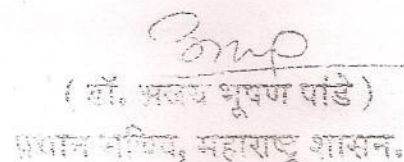 ( डॉ. अजय भूषण पांडे )
प्रधान सचिव, महाराष्ट्र शासन.